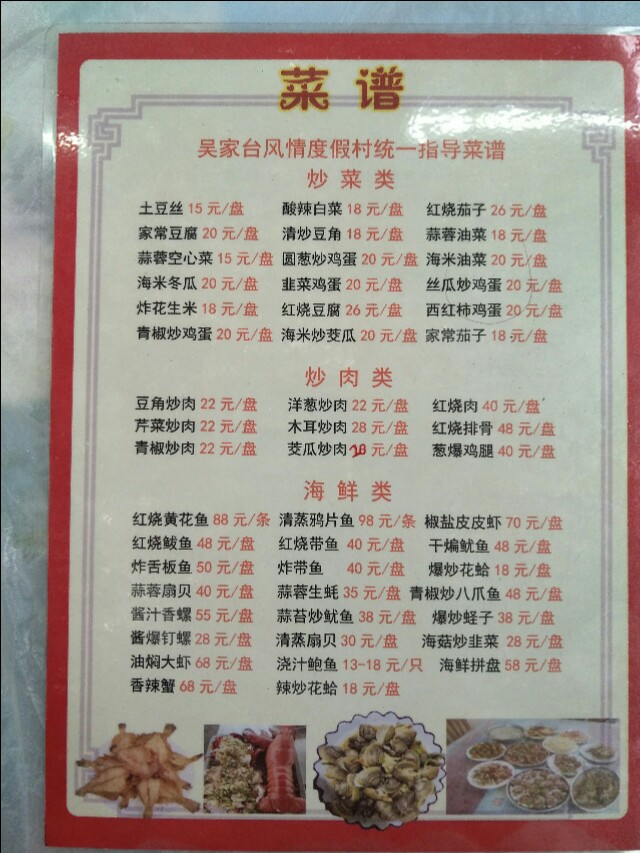 菜谱
吴家台风情度假村统一指导菜谱
炒菜类
土豆丝 15 元/盘 酸辣白菜 18 元/盘 红烧茄子 26 元/盘
家常豆腐 20 元/盘 清炒豆角 18 元/盘 蒜蓉油菜 18 元/盘
蒜蓉空心菜 15 元/盘 圆葱炒鸡蛋 20 元/盘 海米油菜 20 元/盘
海米冬瓜 20 元/盘 韭菜鸡蛋 20 元/盘 丝瓜炒鸡蛋 20 元/盘
炸花生米 18 元/盘 红烧豆腐 26 元/盘 西红柿鸡蛋 20 元/盘
青椒炒鸡蛋 20 元/盘 海米炒茭瓜 20 元/盘 家常茄子 18 元/盘
炒肉类
豆角炒肉 22 元/盘 洋葱炒肉 22 元/盘 红烧肉 40 元/盘
芹菜炒肉 22 元/盘 木耳炒肉 28 元/盘 红烧排骨 48 元/盘
青椒炒肉 22 元/盘 茭瓜炒肉 元/盘 葱爆鸡腿 40 元/盘
海鲜类
红烧黄花鱼 88 元/条 清蒸鸦片鱼 98 元/条 椒盐皮皮虾 70 元/盘
红烧鲅鱼 48 元/盘 红烧带鱼 40 元/盘 干煸鱿鱼 48 元/盘
炸舌板鱼 50 元/盘 炸带鱼 40 元/盘 爆炒花蛤 18 元/盘
蒜蓉扇贝 40 元/盘 蒜蓉生蚝 35 元/盘 青椒炒八爪鱼 48 元/盘
酱汁香螺 55 元/盘 蒜苔炒鱿鱼 38 元/盘 爆炒蛏子 38 元/盘
酱爆钉螺 28 元/盘 清蒸扇贝 30 元/盘 海菇炒韭菜 28 元/盘
油焖大虾 68 元/盘 浇汁鲍鱼 13-18 元/只 海鲜拼盘 58 元/盘
香辣蟹 68 元/盘 辣炒花蛤 18 元/盘